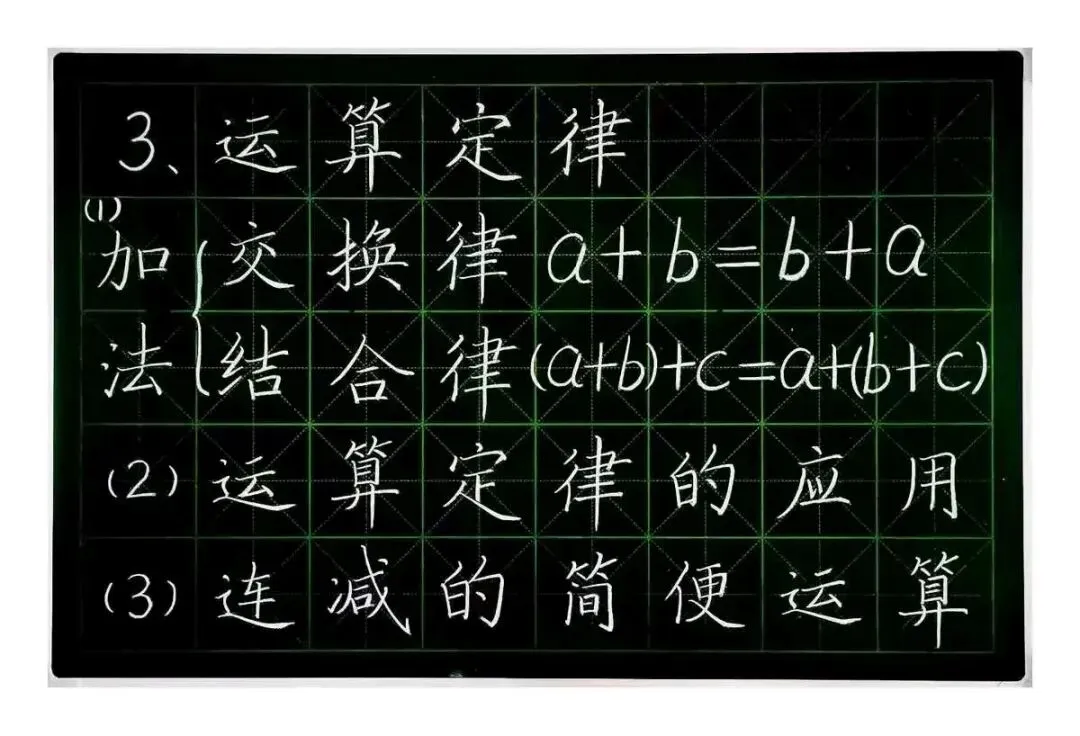 3、运算定律
(1)
加 { 交换律 a+b=b+a
法 { 结合律 (a+b)+c=a+(b+c)
(2) 运算定律的应用
(3) 连减的简便运算